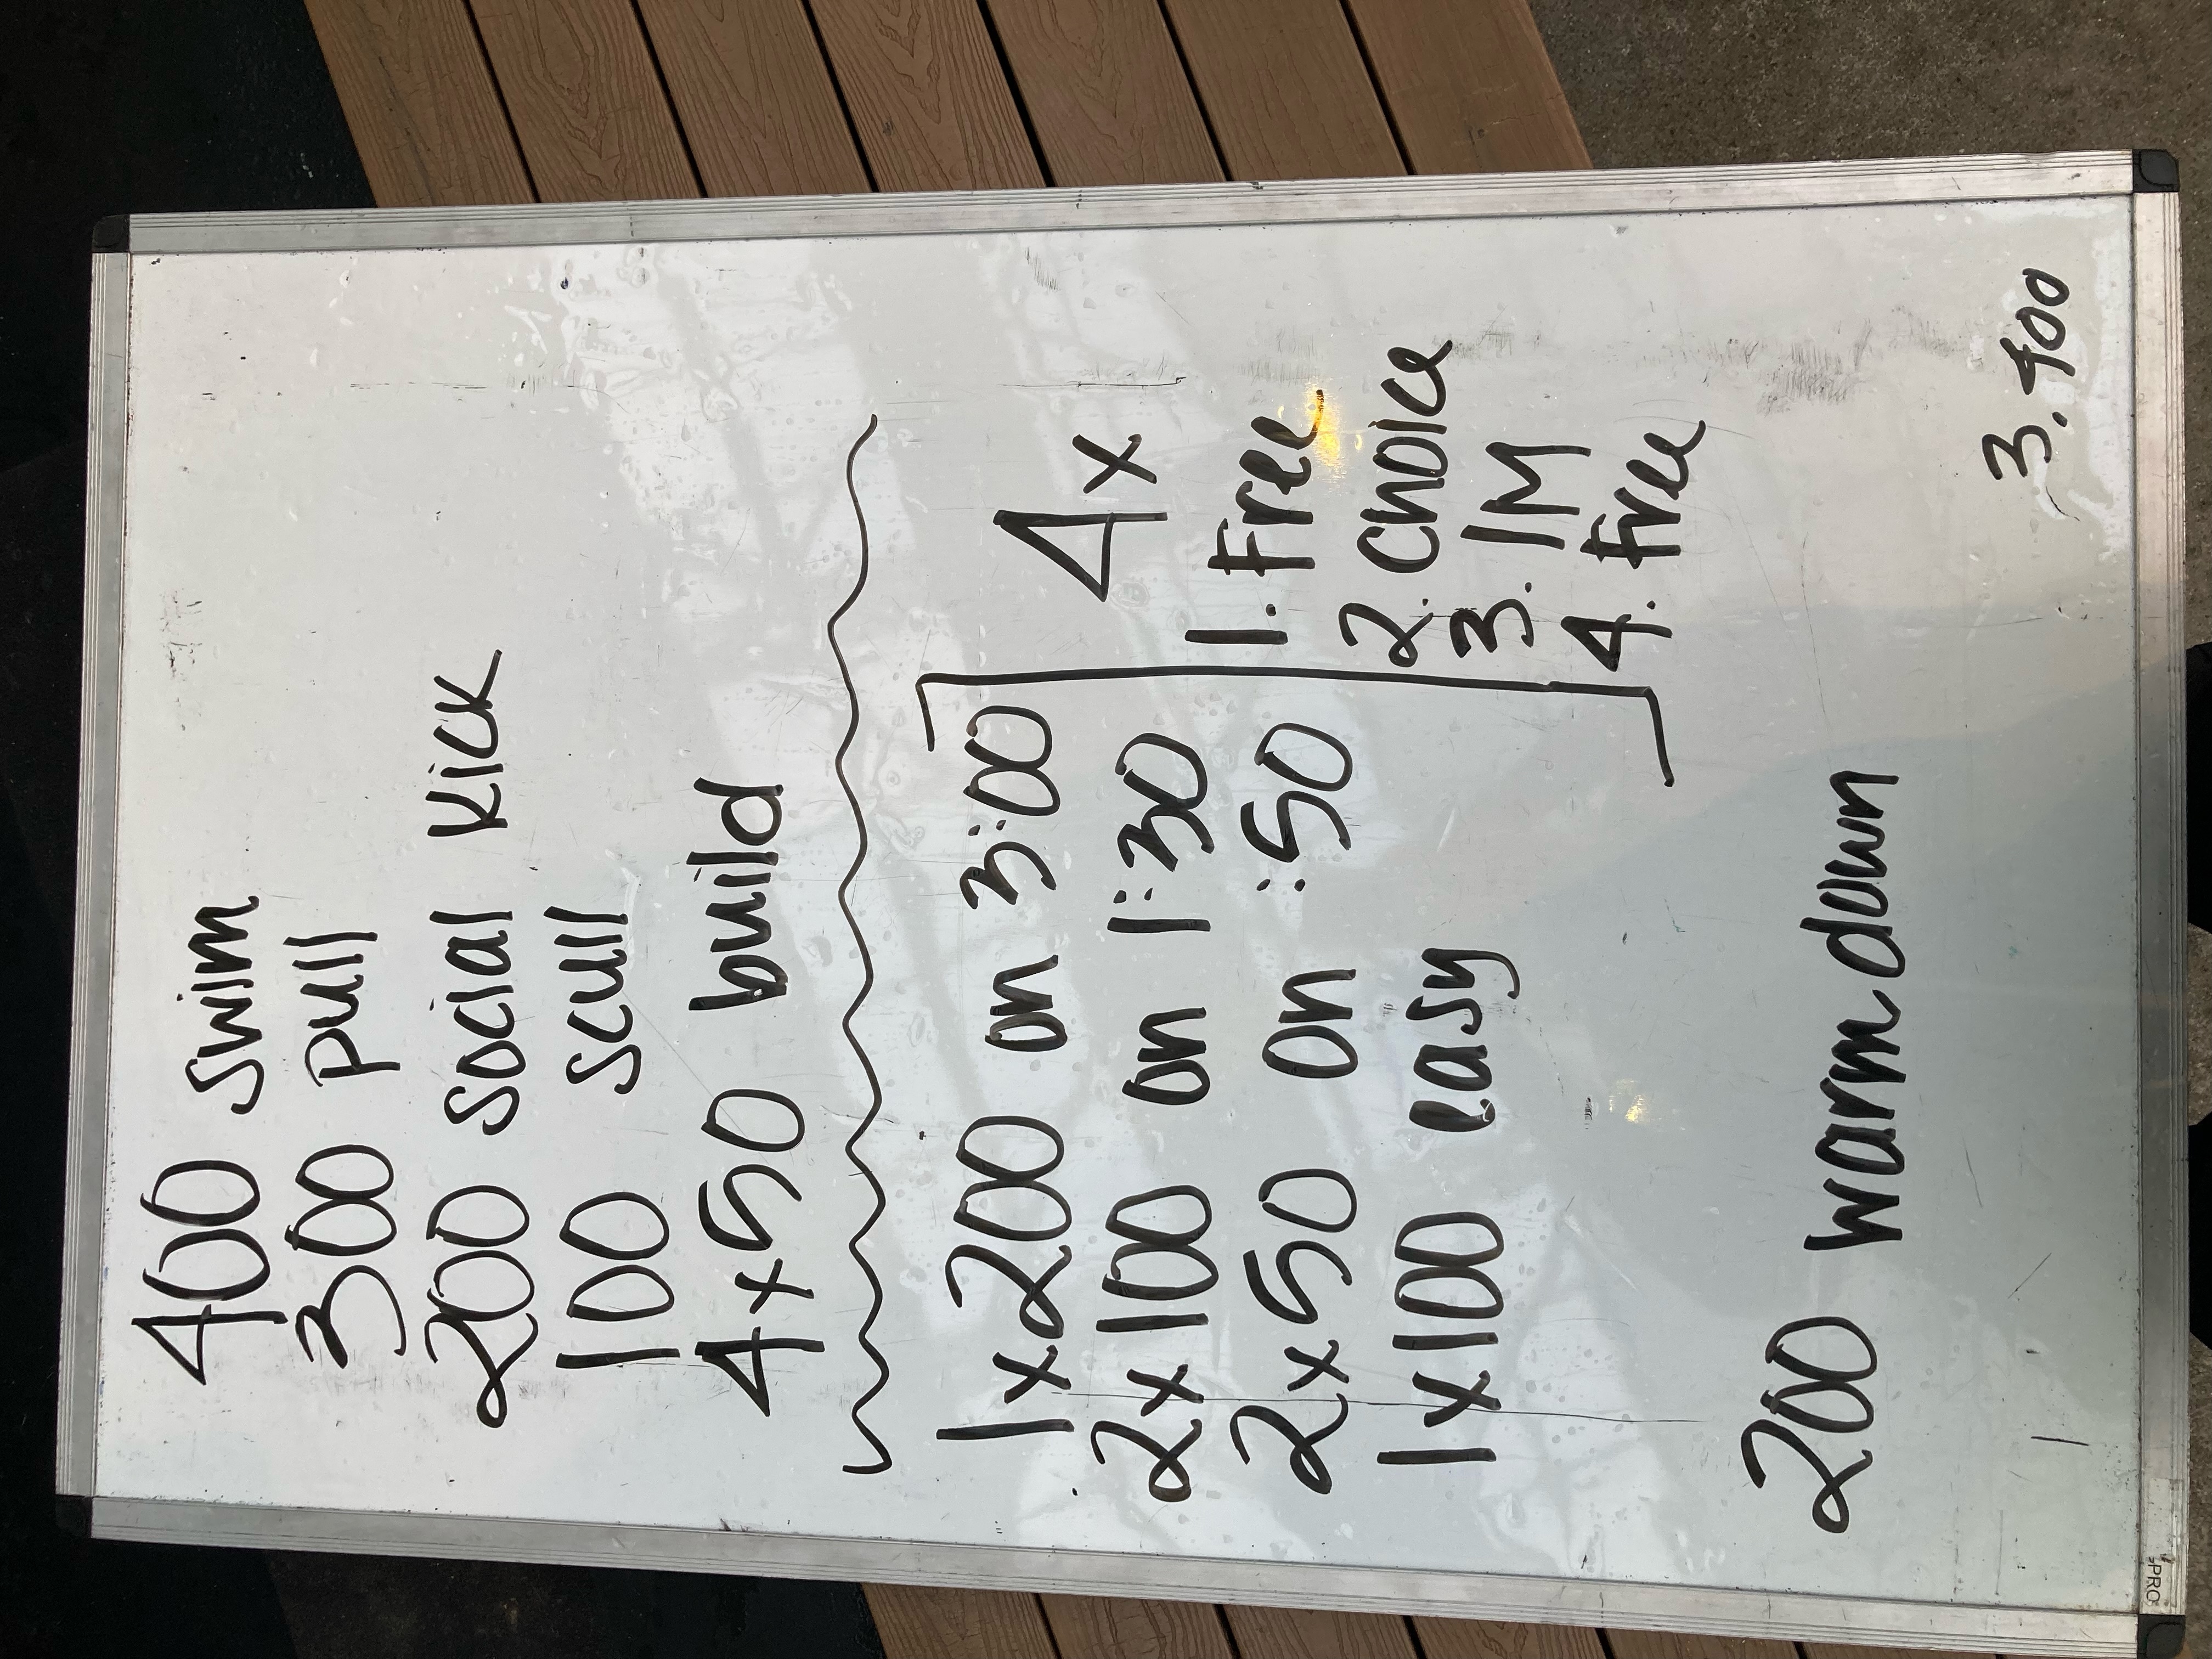 400 swim
300 pull
200 social kick
100 scull
4x50 build
1x200 on 3:00
2x100 on 1:30
2x50 on :50
1x100 easy
4x
1. Free
2. Choice
3. IM
4. Free
200 warm down
3.400